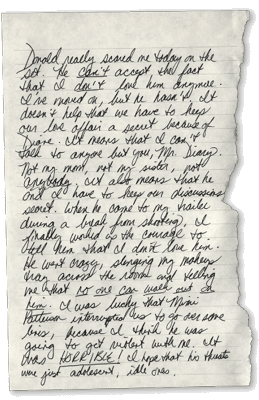 Donald really scared me today on the
set. He can't accept the fact
that I don't love him anymore.
I've moved on, but he hasn't. It
doesn't help that we have to keep
our love affair a secret because of
Diane. It means that I can't
talk to anyone but you, Mr. Diary.
Not my mom, not my sister, not
anybody. It also means that he
and I have to keep our discussions
secret. When he came to my trailer
during a break from shooting, I
finally worked up the courage to
tell him that I don't love him.
He went crazy, slinging my makeup
tray across the room and telling
me that no one can walk out on
him. I was lucky that Mimi
Patterson interrupted us to go over some
lines, because I think he was
going to get violent with me. It
was HORRIBLE! I hope that his threats
were just adolescent, idle ones.